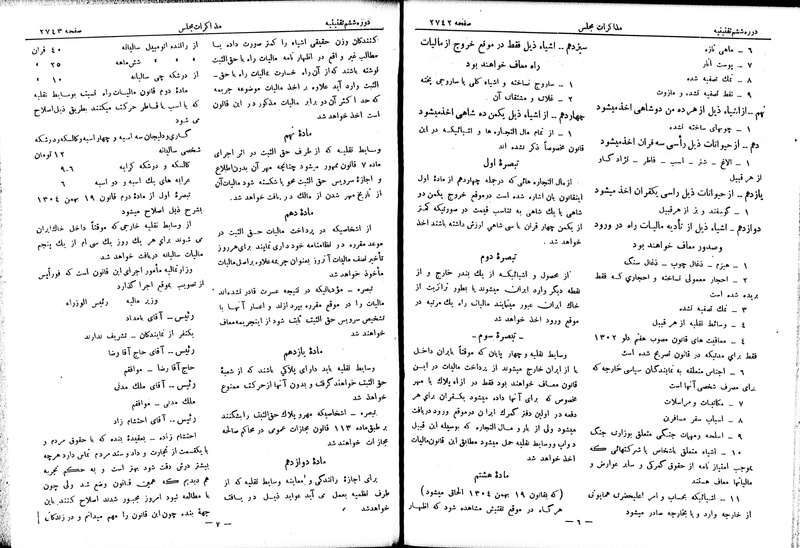 دوره ششم تقنینیه
مذاکرات مجلس
صفحه ۲۷۴۲
۶ - ماهی تازه
۷ - پوست انار
۸ - نمک تصفیه شده
۹ - نفط تصفیه شده و مازوت
نهم - از اشیاء ذیل از هر ده من دوشاهی اخذ میشود
۱ - چوبهای ساخته نشده
دهم - از حیوانات ذیل رأسی سه قران اخذ میشود
۱ - الاغ - شتر - اسب - قاطر - نژاد گـار
از هر قبیل
یازدهم - از حیوانات ذیل رأسی یکقران اخذ میشود
۱ - گوسفند و بز از هر قبیل
دوازدهم - اشیاء ذیل از تأدیه مالیات راه در ورود
وصدور معاف خواهند بود
۱ - هیزم - ذغال چوب - ذغال سنگ
۲ - احجار معمولی نساخته و احجاری که فقط
بریده شده است
۳ - نمک تصفیه نشده
۴ - وسائط نقلیه از هر قبیل
۵ - معافیت های قانون مصوب هفتم دلو ۱۳۰۲
فقط برای مدتیکه در قانون تصریح شده است
۶ - اجناس متعلقه به نمایندگان سیاسی خارجه که
برای مصرف شخصی آنها است
۷ - مکاتبات و مراسلات
۸ - اسباب سفر مسافرین
۹ - اسلحه ومهمات جنگی متعلق بوزارت جنگ
۱۰ - اشیاء متعلق باشخاص یا شرکتهائی کـه
بموجب امتیاز نامه از حقوق گمرکی و سایر عوارض و
مالیاتها معاف هستند
۱۱ - اشیائیکه بحساب و امر اعلیحضرت همایونی
از خارجه وارد و یا بخارجه صادر میشود
سیزدهم - اشیاء ذیل فقط در موقع خروج از مالیات
راه معاف خواهند بود
۱ - ساروج نساخته و اشیاء کلی یا ساروجی پخته
۲ - غلات و مشتقات آن
چهاردهم - از اشیاء ذیل یکمن ده شاهی اخذ میشود
۱ - از تمام مال التجاره ها و اشیائیکه در این
قانون مخصوصاً ذکر نشده اند
تبصره اول
از مال التجاره هائی که درجمله چهاردهم از مادهٔ اول
اینقانون بآن اشاره شده است درموقع خروج یکمن دو
شاهی یا یک شاهی به تناسب قیمت در صورتیکه کمتر
از یکمن چهار قران یا سی شاهی ارزش داشته باشند اخذ
خواهد شد .
تبصره دوم
از محصول و اشیائیکه از یك بندر خارج و از
نقطه دیگر وارد ایران میشوند یا بطور ترانزیت از
خاك ایران عبور مینمایند مالیات راه یك مرتبه در
موقع ورود اخذ خواهد شد
- تبصرهٔ سوم -
وسایط نقلیه و چهار پایان که موقتاً بایران داخل
یا از ایران خارج میشوند از پرداخت مالیات در ایـن
قانون معاف خواهند بود فقط در ازاء پلاك یا مهر
مخصوص که برای آنها داده میشود یکقران برای هر
دفعه در اولین دفتر گمرك ایران درموقع ورود دریافت
میشود ولی از بار و مال التجاره که بوسیله این قبیل
دواب ووسایط نقلیه حمل میشود مطابق این قانون مالیات
اخذ خواهد شد
مادهٔ هشتم
(که بقانون ۱۹ بهمن ۱۳۰۴ الحاق میشود)
هرگـاه در موقع تفتیش مشاهده شود که اظهـار
- ۶ -
دوره ششم تقنینیه
مذاکرات مجلس
صفحه ۲۷۴۳
کنندگان وزن حقیقی اشیاء را کمتر صورت داده بـا
مطالب غیر واقع در اظهار نامه مالیات راه یا حق‌الثبت
نوشته باشند که از آن راه خسارت بمالیات راه یا حق -
الثبت وارد آید علاوه بر اخذ مالیات موضوعه جریمه
که حد اکثر آن دو برابر مالیات مذکور در این قانون
است اخذ خواهد شد
مادهٔ نهم
وسایط نقلیه که از طرف حق الثبت در اثر اجرای
ماده ۷ قانون ممهور میشود چنانچه مهر آن بدون اطلاع
و اجازهٔ سرویس حق الثبت محو یا شکسته شود مالیات آن
از تاریخ مهر شدن از مالك در یافت خواهد شد.
مادهٔ دهم
از اشخاصیکه در پرداخت مالیات حق الثبت در
موعد مقرره در نظامنامه خود داری نمایند برای هر روز
تأخیر نصف مالیات آنروز بعنوان جریمه علاوه بر اصل مالیات
مأخوذ خواهد شد
تبصره - مؤدیانیکه در نتیجه عسرت قادر نشده اند
مالیات را در موقع مقرره بپردازند و اعسار آنهـا بـا
تشخیص سرویس حق الثبت ثابت شود از اینجریمه معاف
خواهند شد
مادهٔ یازدهم
وسایط نقلیه باید دارای پلاکی باشند که از شعبهٔ
حق الثبت خواهند گرفت و بدون آنها از حرکت ممنوع
خواهند شد
تبصره - اشخاصیکه مهر و پلاك حق الثبت را بشکنند
بر طبق ماده ۱۱۳ قانون مجازات عمومی در محاکم صالحه
مجازات خواهند شد
مادهٔ دوازدهم
برای اجازهٔ رانندگی و معاینه وسایط نقلیه که از
طرف نظمیه بعمل می آید عواید ذیل دریـافت
خواهد شد
از راننده اتومبیل سالیانه ۴۰ قران
« » شش ماهه ۲۵ »
از درشکه چی سالیانه ۱۰ »
مادهٔ دوم قانون مالیات راه نسبت بوسایط نقلیه
که با اسب یا قاطر حرکت میکنند بطریق ذیل اصلاح
می شود
گـاری ودلیجان سه اسبه و چهار اسبه و کالسکه و درشکه
شخصی سالیانه ۱۲ تومان
کالسکه و درشکه کرایه ۹.۶
عرابه های یك اسبه و دو اسبه ۶
تبصرهٔ اول از مادهٔ دوم قانون ۱۹ بهمن ۱۳۰۴
بشرح ذیل اصلاح میشود
از وسایط نقلیه خارجی که موقتاً داخل خاك ایران
می شوند برای هر یك روز یك سی ام از یك پنجم
مالیات سالیانه دریافت خواهد شد
وزارت مالیه مأمور اجرای این قانون است که فوراً پس
از تصویب بموقع اجرا گذارد
وزیر مالیه رئیس الوزراء
رئیس - آقای بامداد
یکنفر از نمایندگان - تشریف ندارند
رئیس - آقای حاج آقا رضا
حاج آقا رضا - موافقم
رئیس - آقای ملك مدنی
ملك مدنی - موافقم
رئیس - آقای احتشام زاد
احتشام زاده - بعقیدهٔ بنده که با حقوق مردم و
یا یکقسمت از تجارت و داد و ستد مردم تماس دارد هرچه
بیشتر درش دقت شود بهتر است و به حکم تجربه
هم دیدیم که همین قـانون وضع شد ولی چون
با مطالعه نبود امروز مجبور شدند اصلاح کنند. باین
جهة بنده چون این قانون را مهم میدانم و در زندگانی
- ۷ -